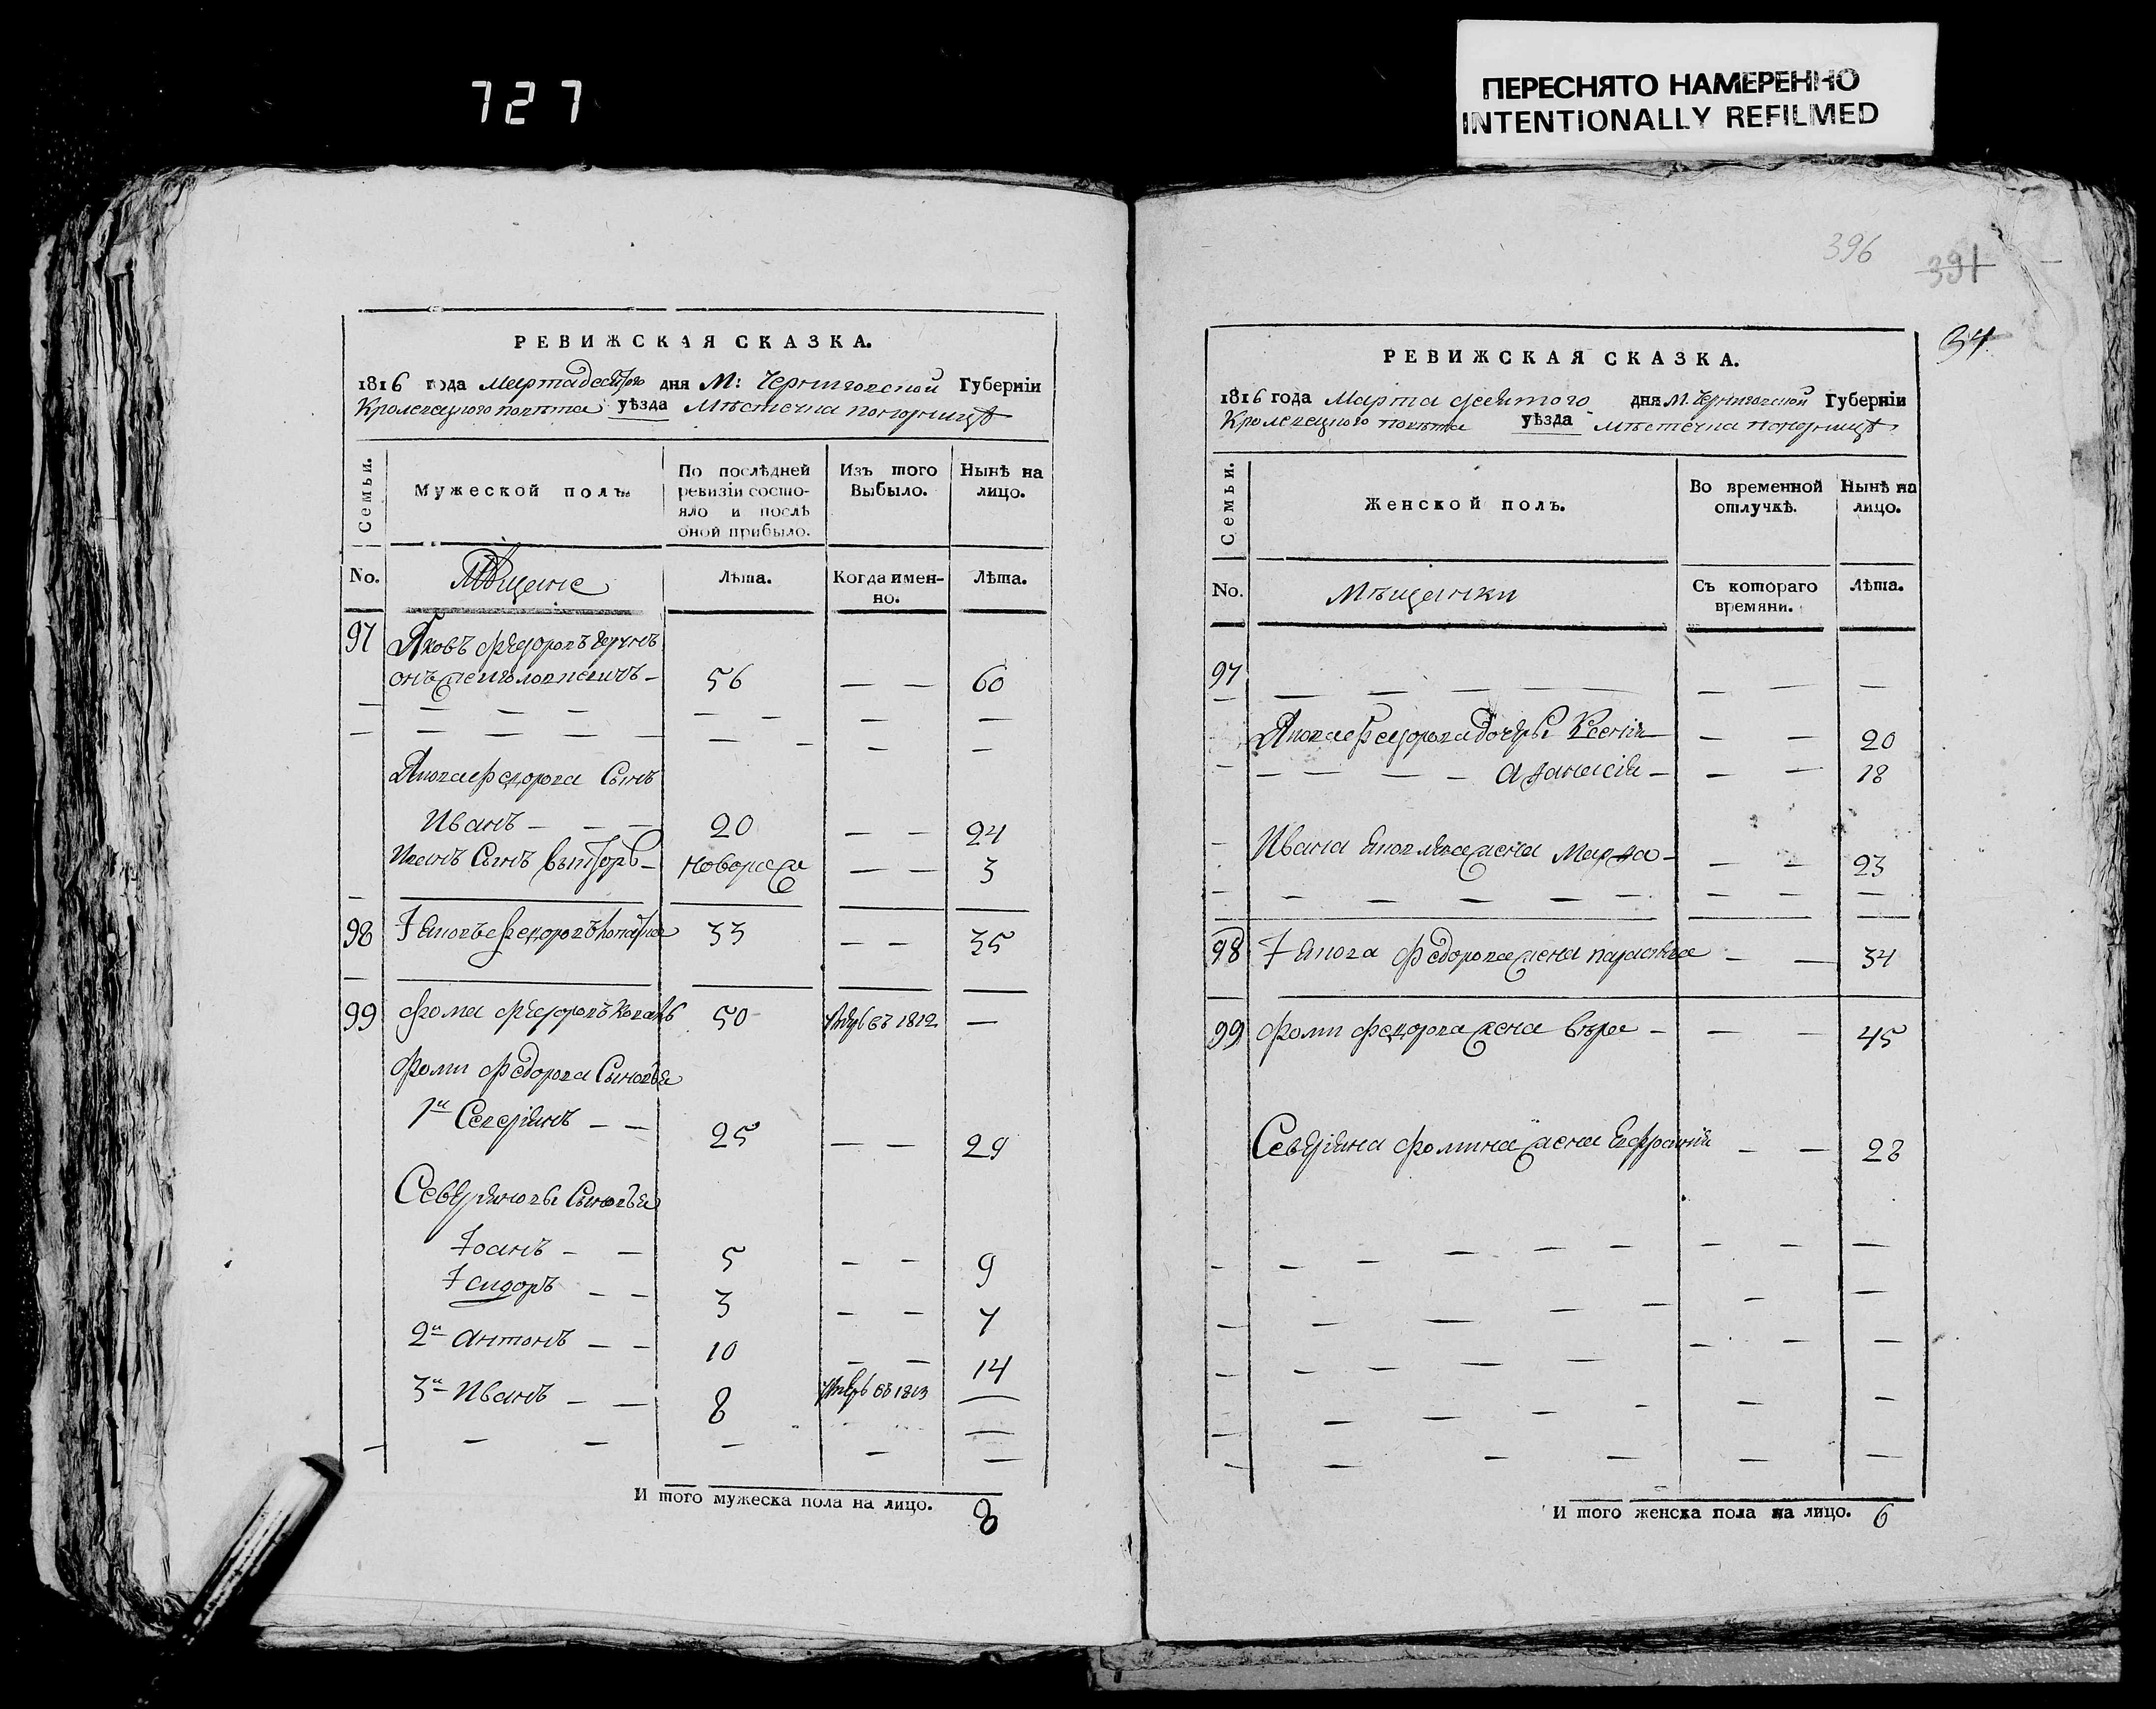 727
ПЕРЕСНЯТО НАМЕРЕННО
INTENTIONALLY REFILMED
РЕВИЖСКАЯ СКАЗКА.
1816 года Марта десятого дня М: Черниговской Губерніи
Кролевецкого повѣта уѣзда Мѣстечка Понорницѣ
Семьи.
Мужеской полъ.
По послѣдней
ревизіи состо-
яло и послѣ
оной прибыло.
Изъ того
Выбыло.
Нынѣ на
лицо.
No.
Мѣщане
Лѣта.
Когда имен-
но.
Лѣта.
97 Яковъ Федоровъ
56 — — 60
Якова Федорова Сынъ
Иванъ — — — 20 — — 24
Сынъ — 3
98 Федоровъ 33 — — 35
99 Фома Федоровъ 50 въ 1812 —
Фоми Федорова Сыновья
1й Северіянъ — — 25 — — 29
Северіяновы Сыновья
Іоанъ — — 5 — — 9
Ісидоръ — — 3 — — 7
2й Антонъ — — 10 — — 14
3й Иванъ — — 8 въ 1813 —
И того мужеска пола на лицо. 8
396
391
34
РЕВИЖСКАЯ СКАЗКА.
1816 года Марта десятого дня М. Черниговской Губерніи
Кролевецкого повѣта уѣзда Мѣстечка Понорницѣ
Семьи.
Женской полъ.
Во временной
отлучкѣ.
Нынѣ на
лицо.
No.
Мѣщанки
Съ котораго
времяни.
Лѣта.
97
Якова Федорова дочери Ксенія — — 20
Афанасія — — — 18
Ивана Яковлева жена Марфа — — — 23
98 Федорова жена — — 34
99 Фоми Федорова жена — — — 45
Севе­ріяна Фомина жена Евфросинія — — 28
И того женска пола на лицо. 6